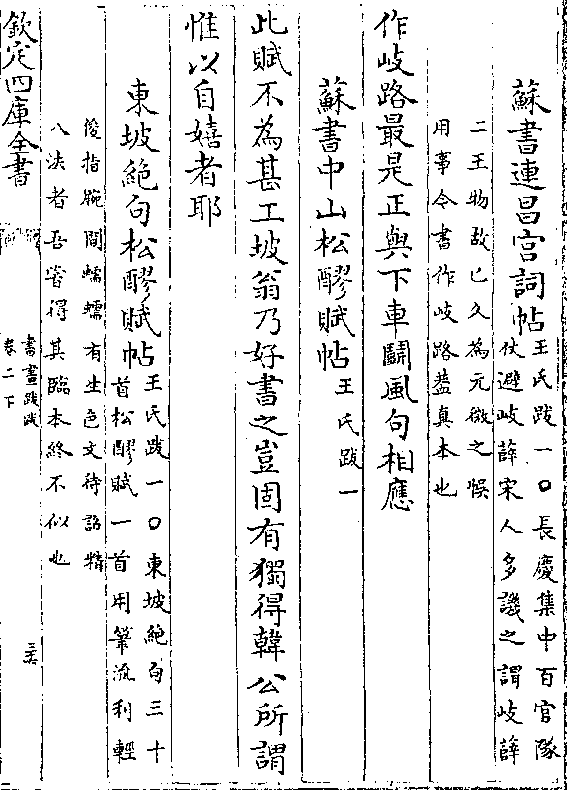 蘇書連昌宮詞帖王氏跋一〇長慶集中百官隊
仗避岐薛宋人多譏之謂岐薛
二王物故已久為元微之悮
用事今書作岐路葢真本也
作岐路最是正與下車鬬風句相應
蘇書中山松醪賦帖王氏跋一
此賦不為甚工坡翁乃好書之豈固有獨得韓公所謂
惟以自嬉者耶
東坡絶句松醪賦帖王氏跋一〇東坡絶句三十
首松醪賦一首用筆流利輕
俊指腕間蠕蠕有生色文待詔精
八法者吾嘗得其臨本終不似也
欽定四庫全書
書畫跋跋
卷二下